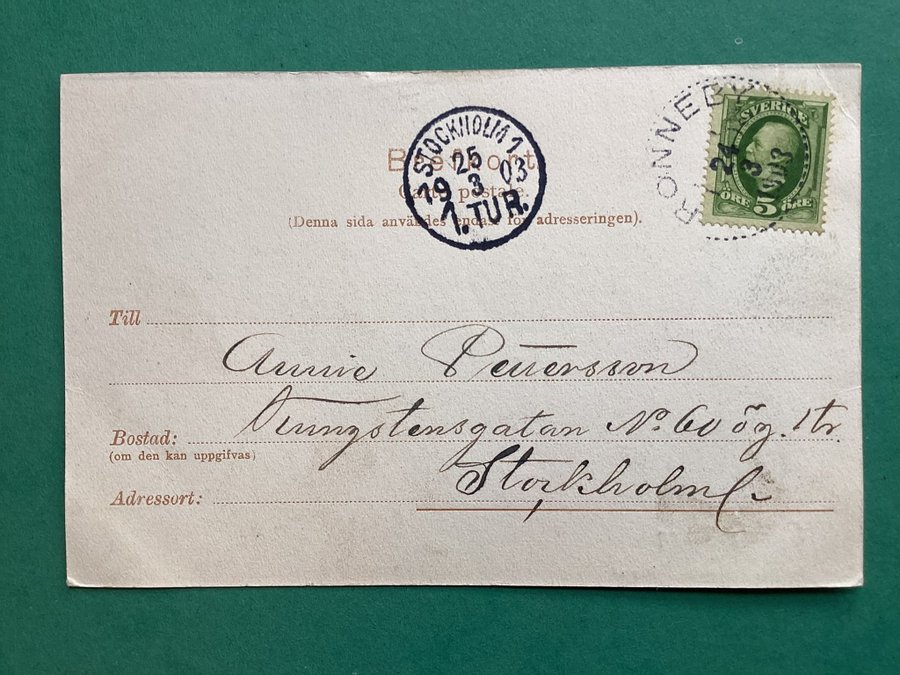 Brefkort
Carte postale.
(Denna sida användes endast för adresseringen).
STOCKHOLM 1
25
19 3 03
1. TUR.
RONNEBY
24
3
1903
SVERIGE
ÖRE 5 ÖRE
Till
Annie Pettersson
Bostad: Kungstensgatan No. 60 ö g. 1 tr.
(om den kan uppgifvas)
Adressort: Stockholm